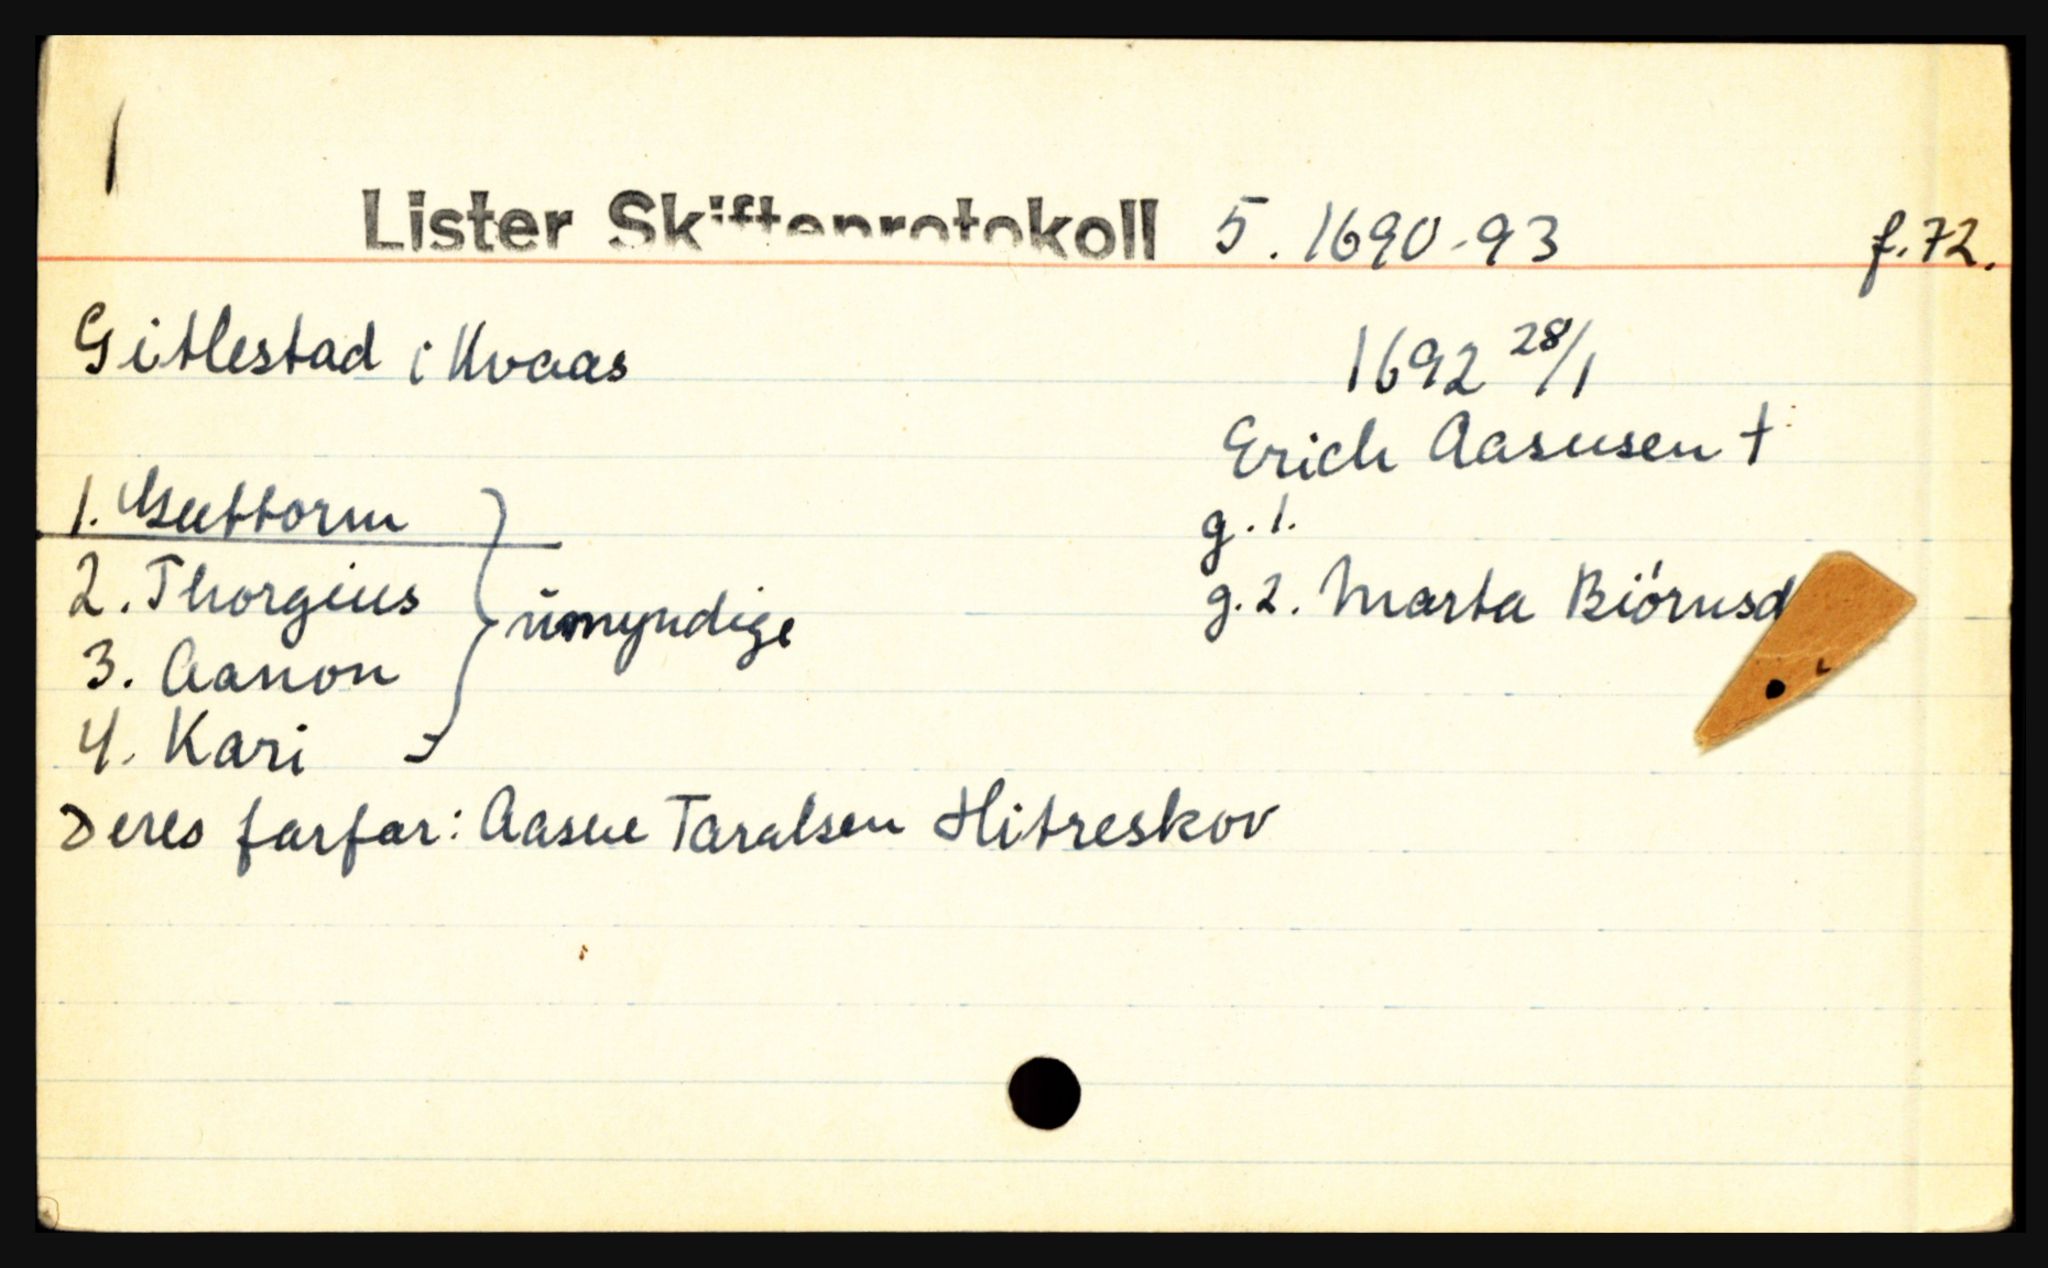 Lister Skifteprotokoll 5. 1690-93 f. 72.
Gitlestad i Kvaas 1692 28/1
Erich Aasusen †
1. Guttorm g. 1.
2. Thorgius ümyndige g. 2. Marta Biórnsd
3. Aanon
4. Kari
Deres farfar: Aasue Taralsen Hitreskov